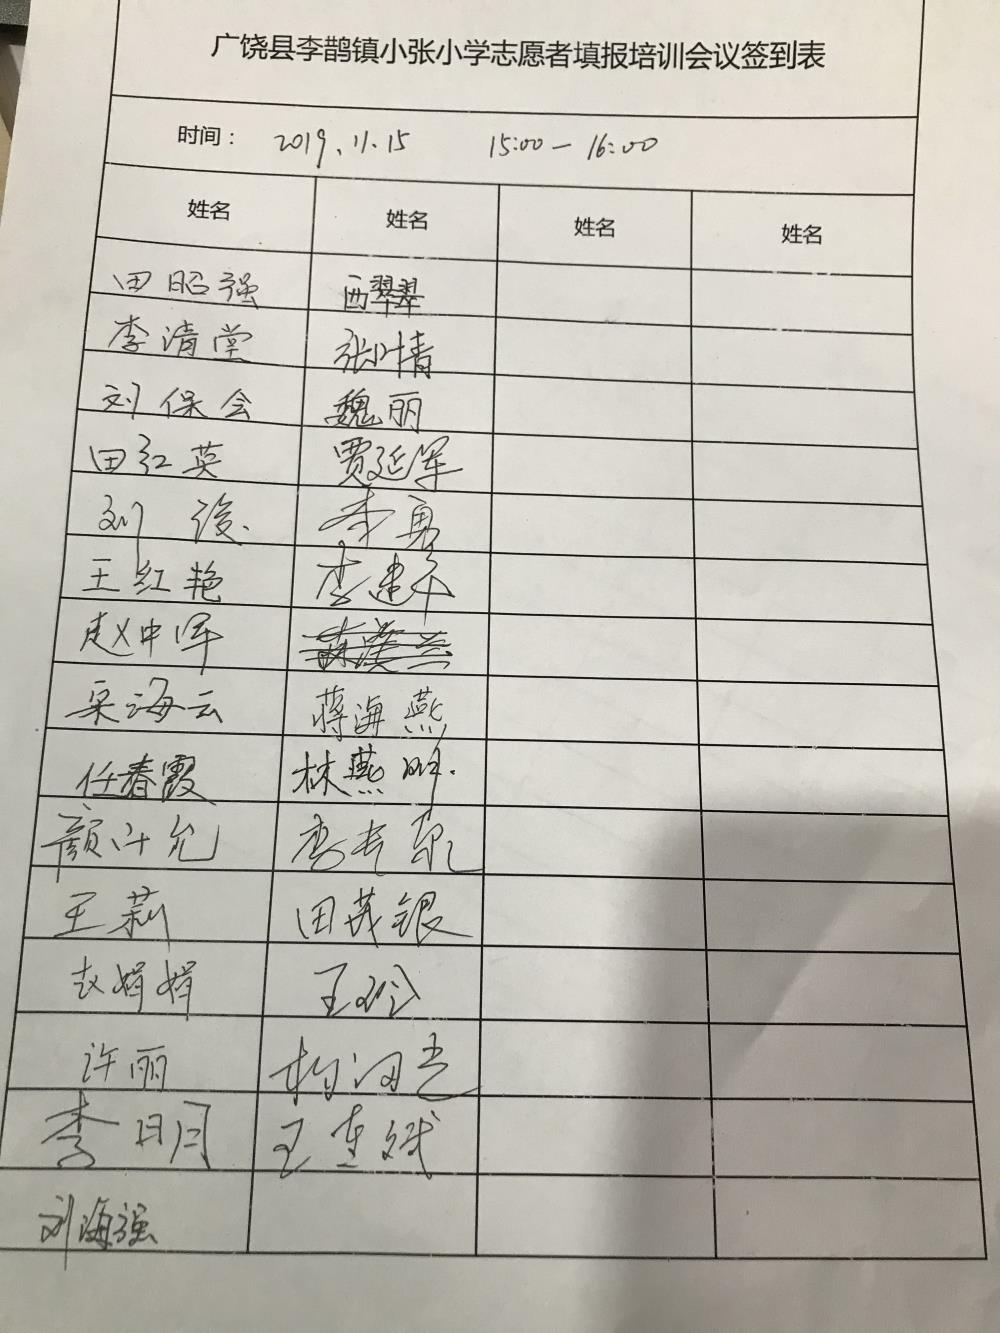 广饶县李鹊镇小张小学志愿者填报培训会议签到表
时间： 2019.11.15 15:00—16:00
姓名 姓名 姓名 姓名
田昭强 西翠翠
李清堂 张叶情
刘保会 魏丽
田红英 贾延军
刘俊 李勇
王红艳 李建军
赵中军
梁海云 蒋海燕
任春霞 林燕明
颜汁允 李
王莉 田茂银
赵娟娟 王玲
许丽
李明 王连斌
刘海强